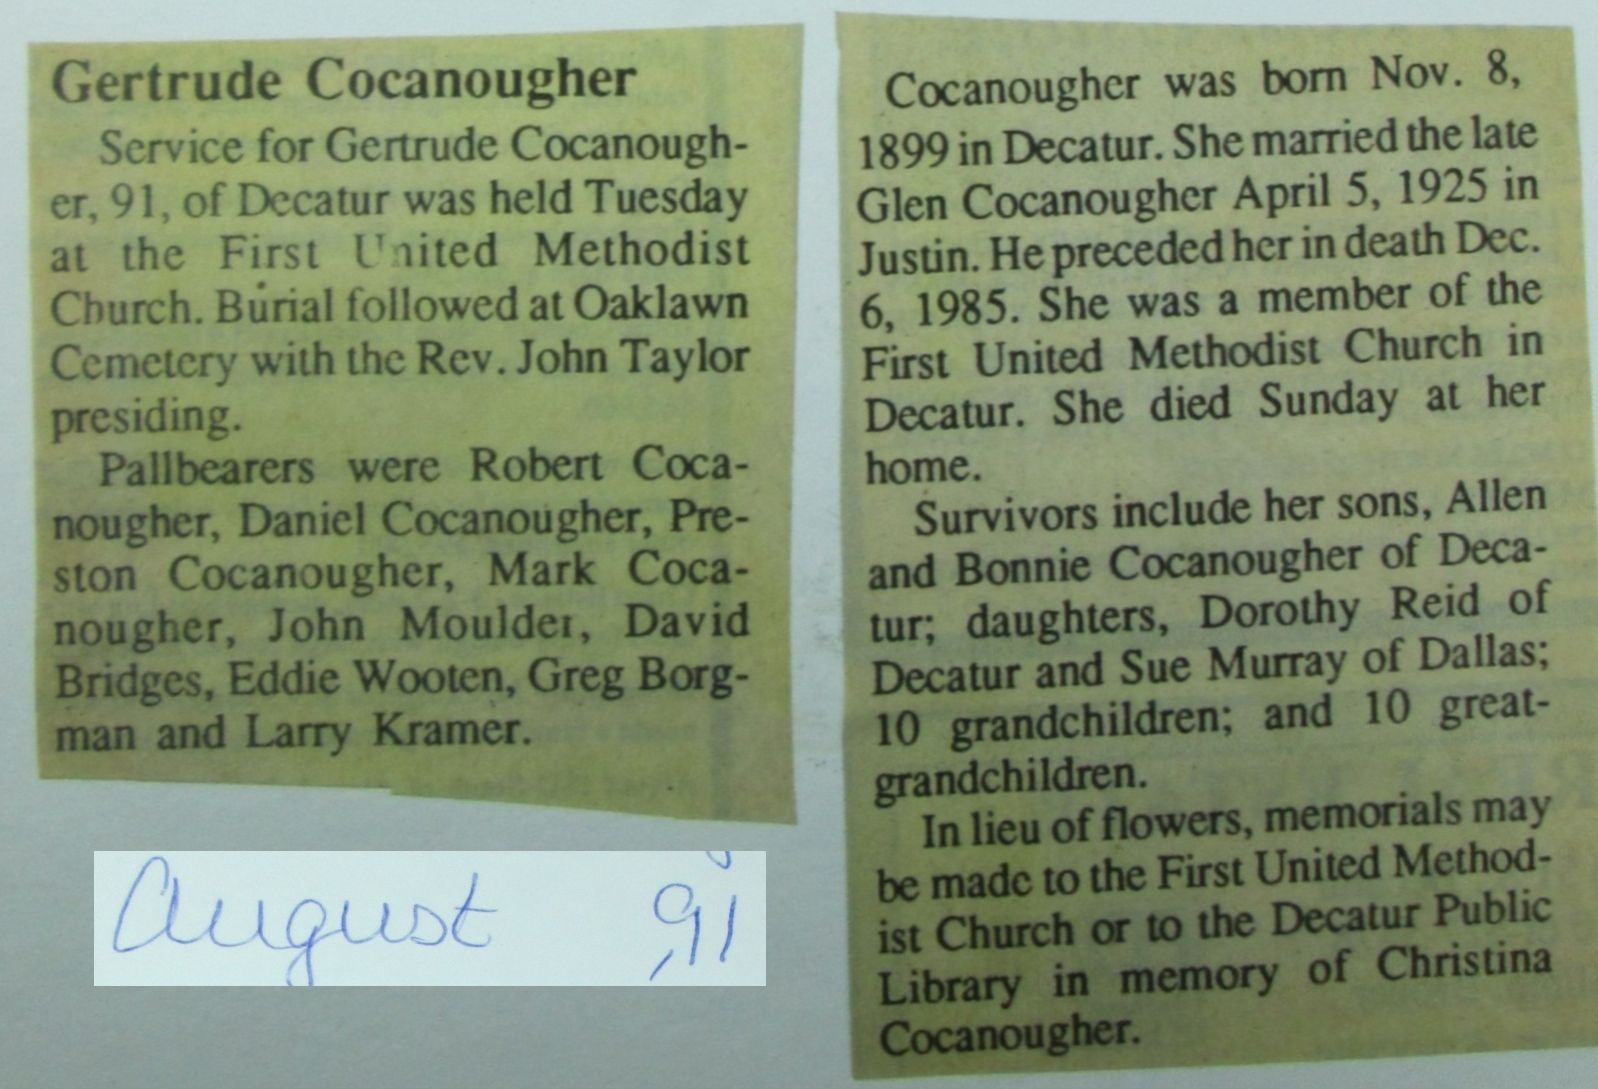 Gertrude Cocanougher
Service for Gertrude Cocanough-
er, 91, of Decatur was held Tuesday
at the First United Methodist
Church. Burial followed at Oaklawn
Cemetery with the Rev. John Taylor
presiding.
Pallbearers were Robert Coca-
nougher, Daniel Cocanougher, Pre-
ston Cocanougher, Mark Coca-
nougher, John Moulder, David
Bridges, Eddie Wooten, Greg Borg-
man and Larry Kramer.
August ,91
Cocanougher was born Nov. 8,
1899 in Decatur. She married the late
Glen Cocanougher April 5, 1925 in
Justin. He preceded her in death Dec.
6, 1985. She was a member of the
First United Methodist Church in
Decatur. She died Sunday at her
home.
Survivors include her sons, Allen
and Bonnie Cocanougher of Deca-
tur; daughters, Dorothy Reid of
Decatur and Sue Murray of Dallas;
10 grandchildren; and 10 great-
grandchildren.
In lieu of flowers, memorials may
be made to the First United Method-
ist Church or to the Decatur Public
Library in memory of Christina
Cocanougher.